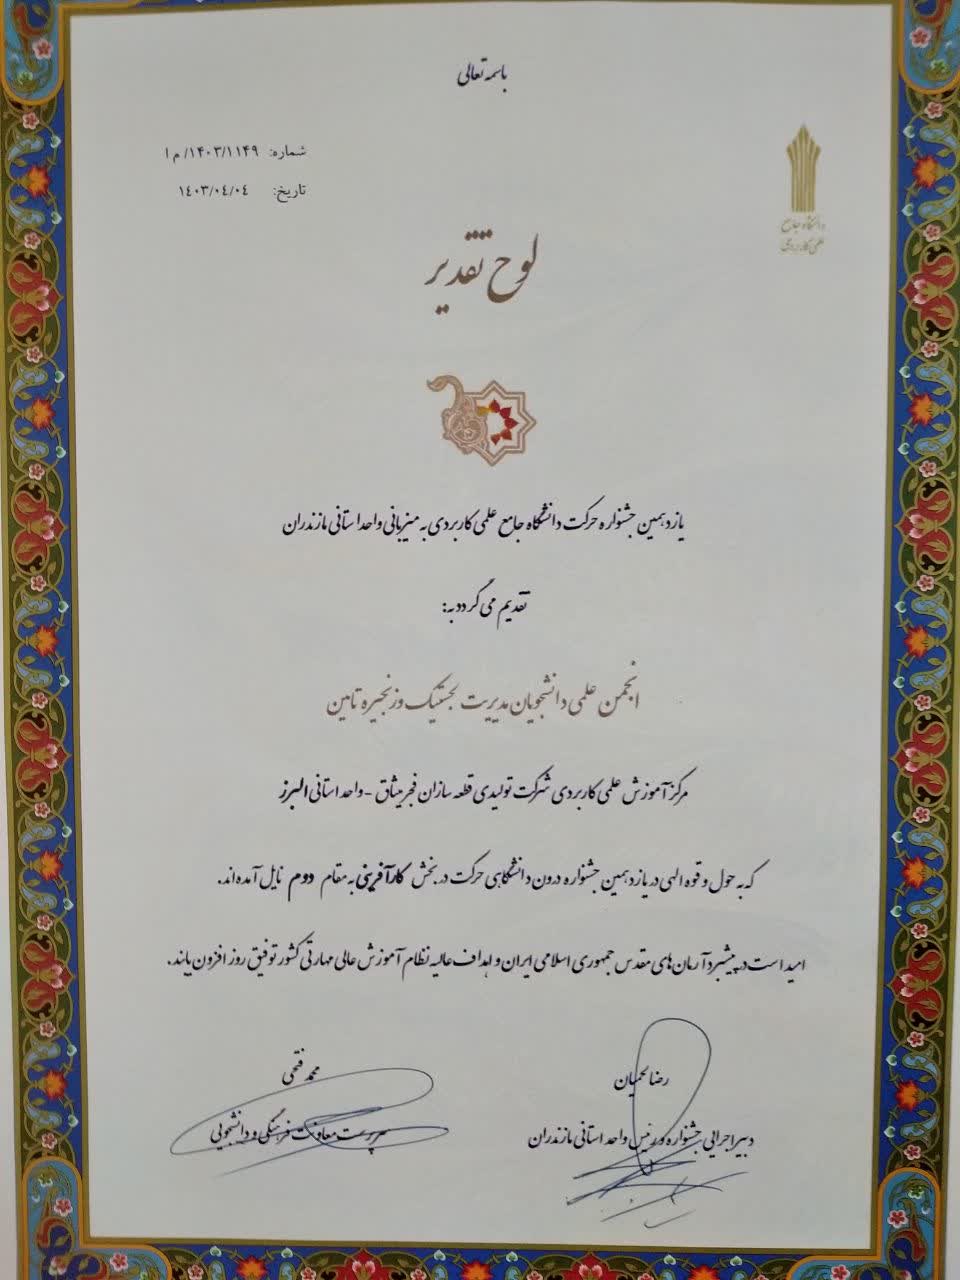 باسمه تعالی
شماره: ۱۴۰۳/۱۱۴۹/ م ا
تاریخ: ۱۴۰۳/۰۴/۰۴
دانشگاه جامع
علمی کاربردی
لوح تقدیر
یازدهمین جشنواره حرکت دانشگاه جامع علمی کاربردی به میزبانی واحد استانی مازندران
تقدیم می گردد به:
انجمن علمی دانشجویان مدیریت لجستیک و زنجیره تامین
مرکز آموزش علمی کاربردی شرکت تولیدی قطعه سازان فجر میثاق - واحد استانی البرز
که به حول و قوه الهی در یازدهمین جشنواره درون دانشگاهی حرکت در بخش کارآفرینی به مقام دوم نایل آمده اند.
امید است در پیشبرد آرمان های مقدس جمهوری اسلامی ایران و اهداف عالیه نظام آموزش عالی مهارتی کشور توفیق روز افزون یابند.
رضا لحمیان
دبیر اجرایی جشنواره و رئیس واحد استانی مازندران
محمد فتحی
سرپرست معاونت فرهنگی و دانشجویی